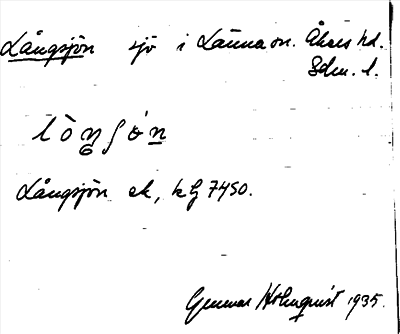 Långsjön sjö i Länna sn. Åkers hd.
Sdm. l.
lòŋʃón
Långsjön ek, kbl 7450.
Gunnar Holmquist 1935.